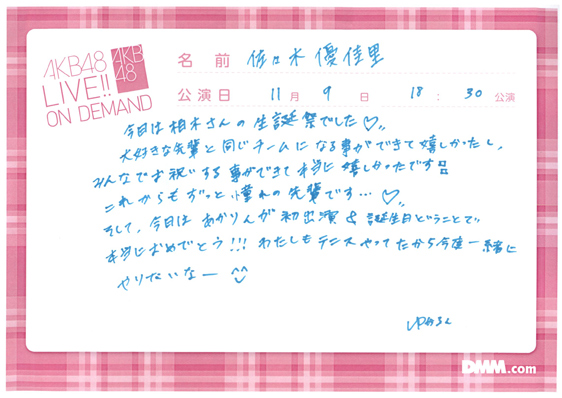 AKB48
LIVE!!
ON DEMAND
AKB
48
名前 佐々木優佳里
公演日 11月9日 18:30公演
今日は柏木さんの生誕祭でした♡
大好きな先輩と同じチームになる事ができて嬉しかったし、
みんなでお祝いする事ができて本当に嬉しかったです!!
これからもずっと憧れの先輩です…♡
そして、今日はあかりんが初出演&誕生日ということで
本当におめでとう!!! わたしもテニスやってたから今度一緒に
やりたいなー ^^
ゆかるん
DMM.com